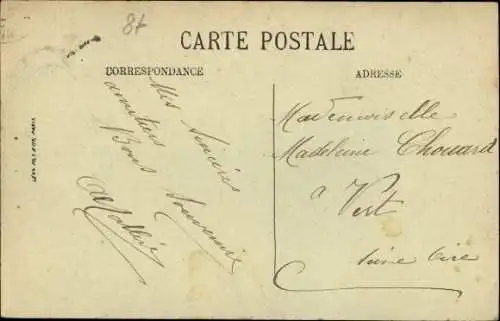 87
CARTE POSTALE
CORRESPONDANCE
ADRESSE
Mes sincères
amitiés
Bons Souvenirs
Mademoiselle
Madeleine Chouard
à Vert
Seine Oise